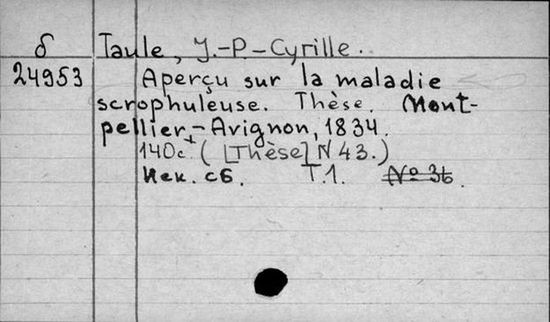 δ Taule, J.-P.-Cyrille.
24953 Aperçu sur la maladie
scrophuleuse. Thèse. Mont-
pellier-Avignon, 1834.
140c. ([Thèse] N 43.)
Нек. сб. Т.1. № 36.